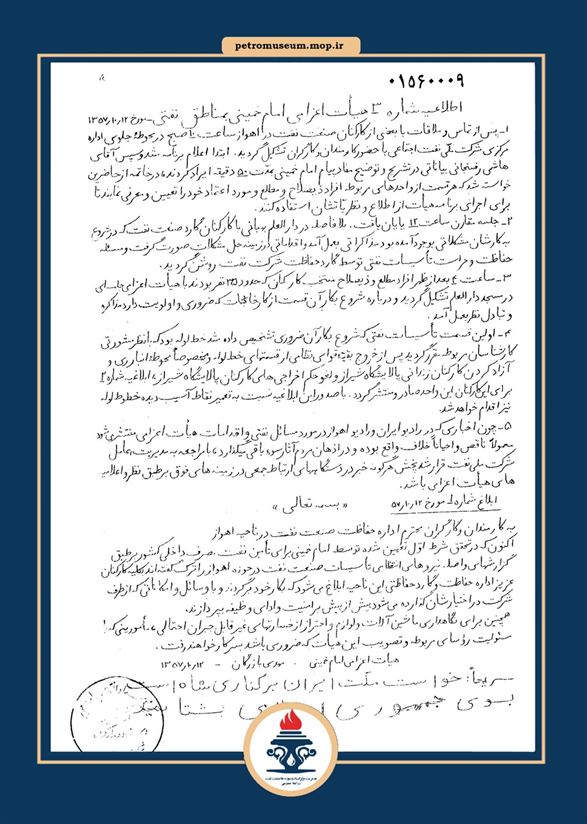 petromuseum.mop.ir
۰۱۵۶۰۰۰۹
اطلاعیه شماره ۳ هیأت اعزامی امام خمینی بمناطق نفتی - مورخ ۱۳۵۷,۱۰,۱۲
۱- پس از تماس و ملاقات با بعضی از کارکنان صنعت نفت در اهواز ساعت ۱۰ صبح در محوطه جلوی اداره
مرکزی شرکت ملی نفت اجتماعی با حضور کارمندان و کارگران تشکیل گردید. ابتدا اعلام برنامه شد و سپس آقای
هاشمی رفسنجانی بیاناتی در تشریح و توضیح مفاد پیام امام خمینی بمدت ۵۰ دقیقه ایراد کردند، در خاتمه از حاضرین
خواسته شد که هر قسمت از واحدهای مربوطه افراد ذیصلاح و مطلع و مورد اعتماد خود را تعیین و معرفی نمایند تا
برای اجرای برنامه هیأت از اطلاع و نظریاتشان استفاده کنند.
۲- جلسه مقارن ساعت ۱۲ پایان یافت. بلافاصله در دارالعلم بهبهانی با کارکنان گارد صنعت نفت که در شروع
به کارشان مشکلاتی بوجود آمده بود مذاکراتی بعمل آمد و اقداماتی در زمینه حل مشکلات صورت گرفت و مسئله
حفاظت و حراست تأسیسات نفتی توسط گارد حفاظت شرکت نفت روشن گردید.
۳- ساعت ۴ بعد از ظهر افراد مطلع و ذیصلاح منتخب کارکنان که حدود ۲۵ نفر بودند با هیأت اعزامی جلسه‌ای
در مسجد دارالعلم تشکیل گردید و درباره شروع بکار آن قسمت از کارخانجات که ضروری و اولویت دارد مذاکره
و تبادل نظر بعمل آمد.
۴- اولین قسمت تأسیسات نفتی که شروع بکار آن ضروری تشخیص داده شد خط لوله بود که با نظر مشورتی
کارشناسان مربوطه مقرر گردید پس از خروج بقیه قوای نظامی از قسمتهای خط لوله و مخصوصاً محوطه انبارری و
آزاد کردن کارکنان زندانی پالایشگاه شیراز و لغو حکم اخراجی های کارکنان پالایشگاه شیراز، ابلاغیه شماره ۲
برای این کارکنان این واحد صادر و منتشر گردد. با صدور این ابلاغیه نسبت به تعمیر نقاط آسیب دیده خطوط لوله
نیز اقدام خواهد شد.
۵- چون اخباری که در رادیو ایران و رادیو اهواز در مورد مسائل نفتی و اقدامات هیأت اعزامی منتشر می‌شود
معمولاً ناقص و احیاناً خلاف واقع بوده و در اذهان مردم آثار سوء باقی میگذارد، با مراجعه به مدیریت عامل
شرکت ملی نفت قرار شد پخش هرگونه خبر در دستگاههای ارتباط جمعی در زمینه های فوق بر طبق نظر و اعلامیه
های هیأت اعزامی باشد.
ابلاغ شماره ۱ مورخ ۵۷,۱۰,۱۲
« بسمه تعالی »
به کارمندان و کارگران محترم اداره حفاظت صنعت نفت در ناحیه اهواز
اکنون که در تحقق شرط اول تعیین شده توسط امام خمینی برای تأمین نفت مصرف داخلی کشور بر طبق
گزارشهای واصله نیروهای انتظامی تأسیسات صنعت نفت در حوزه اهواز را ترک گفته‌اند کلیه کارکنان
عزیز اداره حفاظت و گارد حفاظتی این ناحیه ابلاغ می‌شود که بکار خود برگردند و با وسائل و امکاناتی که از طرف
شرکت در اختیارشان گذارده می‌شود بیش از پیش بر امنیت و ادای وظیفه بپردازند.
همچنین برای نگاهداری ماشین آلات و لوازم و احتراز از خسارتهای غیرقابل جبران احتمالی، مأمورینی که به
مسئولیت رؤسای مربوطه و تصویب این هیأت که ضروری باشد بسر کار خواهند رفت.
هیأت اعزامی امام خمینی . مهدی بازرگان - ۱۳۵۷,۱۰,۱۲
خواست ملت ایران برکناری شاه است
بسوی جمهوری اسلامی بشتابید